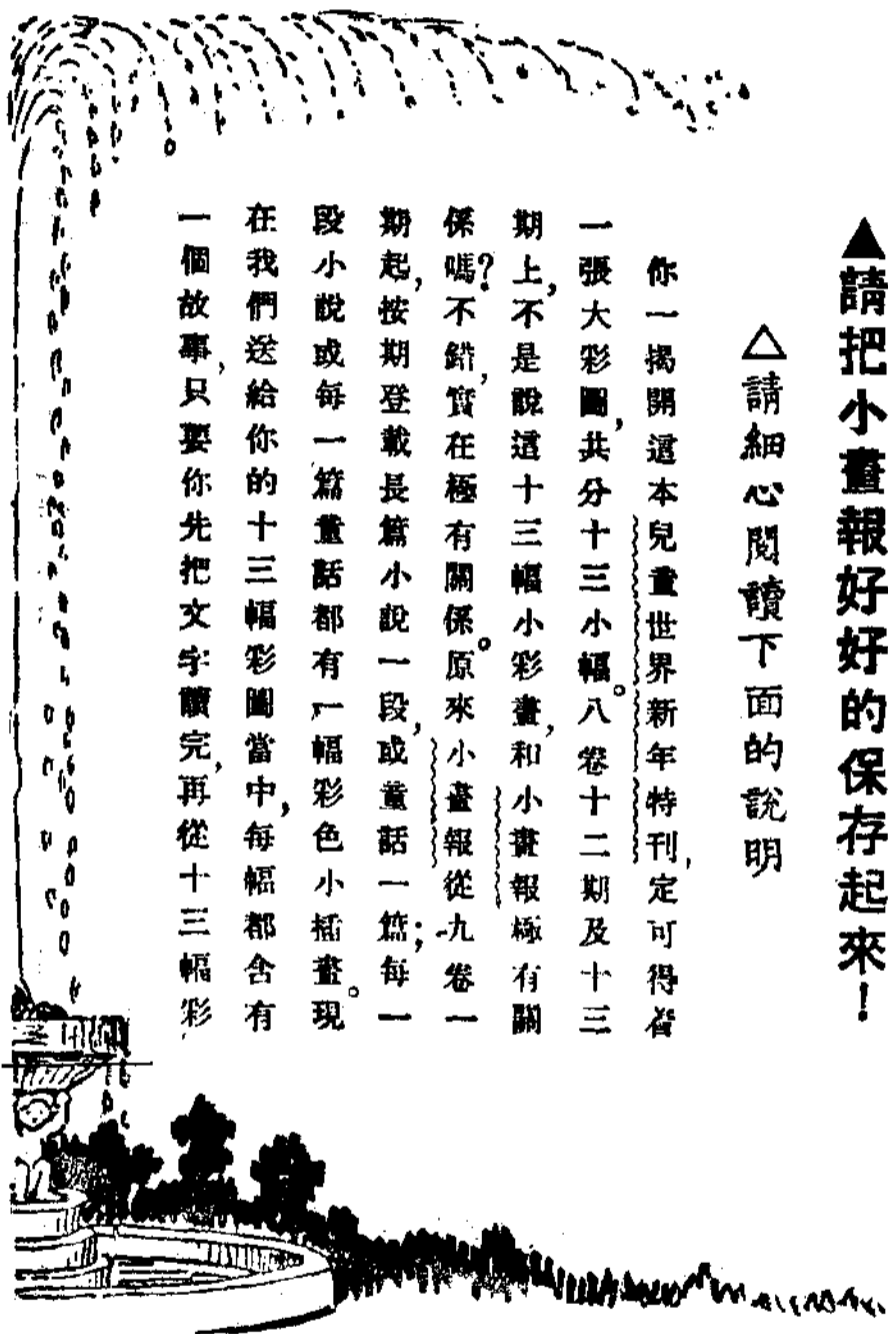 ▲請把小畫報好好的保存起來！
△請細心閱讀下面的說明
你一揭開這本兒童世界新年特刊，定可得着
一張大彩圖，共分十三小幅。八卷十二期及十三
期上，不是說這十三幅小彩畫，和小畫報極有關
係嗎？不錯，實在極有關係。原來小畫報從九卷一
期起，按期登載長篇小說一段，或童話一篇；每一
段小說或每一篇童話都有一幅彩色小插畫。現
在我們送給你的十三幅彩圖當中，每幅都含有
一個故事，只要你先把文字讀完，再從十三幅彩